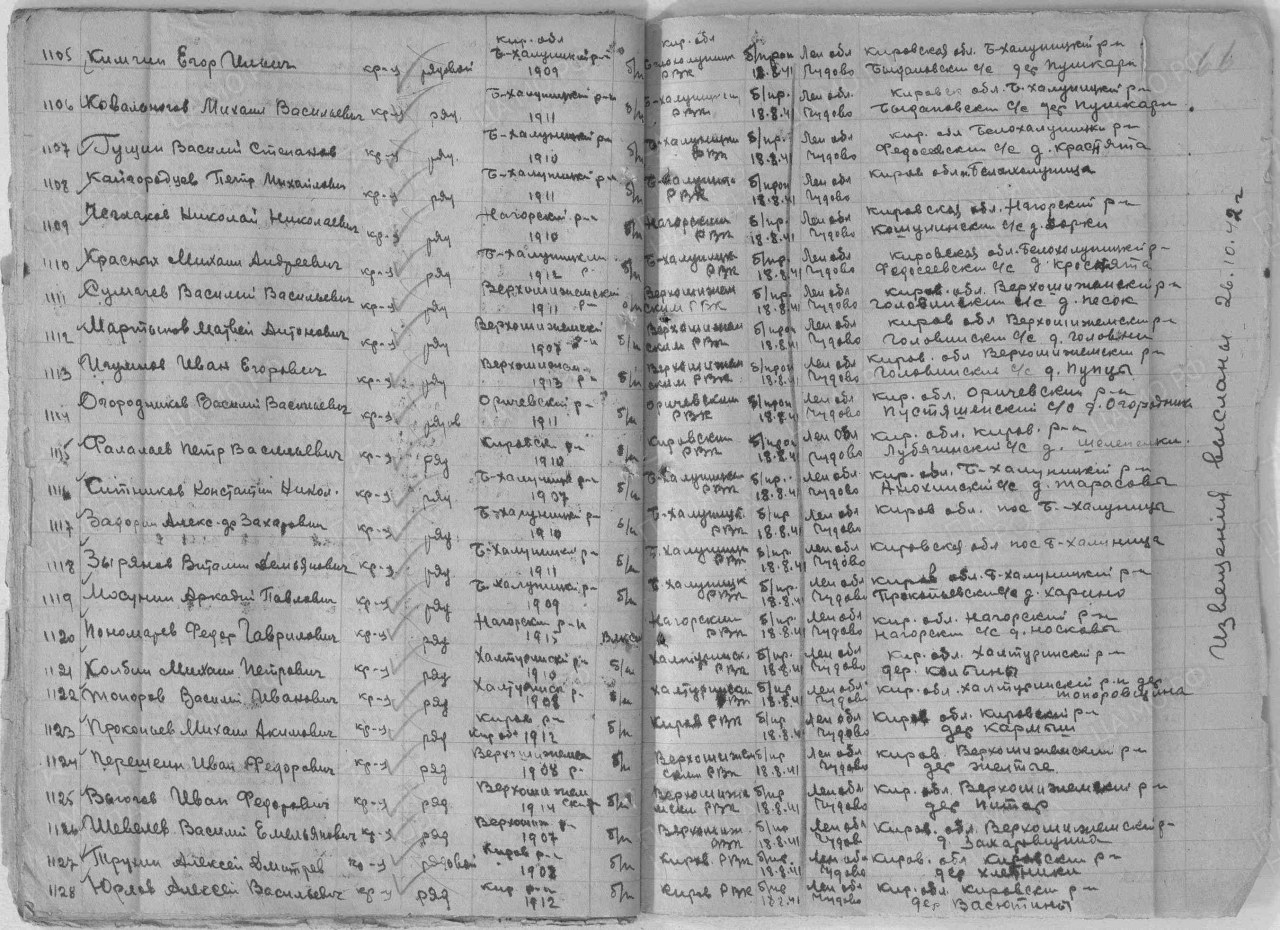 1105 Кимчин Егор Ильич кр-ц рядовой кир. обл Б-Халуницкий р-н 1909 б/п кир. обл Б-Халуницк РВК б/проп 18.8.41 Лен обл Чудово Кировская обл. Б-Халуницкий р-н Быдановский с/с дер Пушкари
1106 Ковальногов Михаил Васильевич кр-ц ряд. Б-Халуницкий р-н 1911 б/п Б-Халуницк РВК б/пр. 18.8.41 Лен обл Чудово Кировская обл. Б-Халуницкий р-н Быдановский с/с дер Пушкари
1107 Пущин Василий Степанов кр-ц ряд. Б-Халуницкий р-н 1910 б/п Б-Халуницк РВК б/пр. 18.8.41 Лен обл Чудово Кир. обл Белохалуницк р-н Федосеевский с/с д. Краснята
1108 Кайгородцев Петр Михайлович кр-ц ряд Б-Халуницкий р-н 1911 б/п Б-Халуницк РВК б/проп 18.8.41 Лен обл Чудово Киров обл Белохолуница
1109 Чеглаков Николай Николаевич кр-ц ряд Нагорский р-н 1910 б/п Нагорский РВК б/пр. 18.8.41 Лен обл Чудово Кировская обл. Нагорский р-н Кошунинский с/с д. Борки
1110 Красных Михаил Андреевич кр-ц ряд Б-Халуницкий р- 1912 б/п Б-Халуницк РВК б/пр. 18.8.41 Лен обл Чудово Кировская обл. Белохолуницкий р- Федосеевский с/с д. Кроснята
1111 Сумачев Василий Васильевич кр-ц ряд Верхошижемский р-н 1911 б/п Верхошижемским РВК б/пр. 18.8.41 Лен обл Чудово Киров. обл. Верхошижемский р-н Головинский с/с д. Песок
1112 Мартынов Матвей Антонович кр-ц ряд Верхошижемский р-н 1907 б/п Верхошижемским РВК б/пр. 18.8.41 Лен обл Чудово Киров обл Верхошижемский р-н Головинский с/с д. Головени
1113 Ичуимов Иван Егорович кр-ц ряд Верхошижем р-н 1913 б/п Верхошижемским РВК б/проп 18.8.41 Лен обл Чудово Киров. обл Верхошижемский р-н Головинский с/с д. Пунцы
1114 Огородников Василий Васильевич кр-ц рядов Оричевский р-н 1911 б/п Оричевским РВК б/проп 18.8.41 Лен обл Чудово Кир. обл. Оричевский р-н Пустяшенский с/с д. Огородники
1115 Фалалаев Петр Васильевич кр-ц ряд Кировск р-н 1910 б/п Кировским РВК б/проп 18.8.41 Лен обл Чудово Кир. обл. Киров. р-н Лубягинский с/с д.
1116 Ситников Константин Никол. кр-ц ряд Б-Халуницкий р-н 1907 б/п Б-Халуницк РВК б/проп 18.8.41 Лен обл Чудово Кир. обл. Б-Халуницкий р-н Анохинский с/с д. Тарасовы
1117 Задорин Алекс-др Захарович кр-ц ряд Б-Халуницкий р-н 1910 б/п Б-Халуницк РВК б/пр 18.8.41 Лен обл Чудово Киров обл. пос Б-Халуницы
1118 Зырянов Виталий Демьянович кр-ц ряд Б-Халуницкий р-н 1911 б/п Б-Халуницк РВК б/пр. 18.8.41 Лен обл Чудово Кировская обл пос Б-Халуница
1119 Мосунин Аркадий Павлович кр-ц ряд Б Халуницкий р- 1909 б/п Б Халуницк РВК б/пр. 18.8.41 Лен обл Чудово Киров обл. Б-Халуницкий р-н Прокопьевский с/с д. Харино
1120 Пономарев Федор Гаврилович кр-ц ряд Нагорский р-н 1915 Нагорским РВК б/пр. 18.8.41 Лен обл Чудово Кир. обл. Нагорский р-н Нагорский с/с д. Носковы
1121 Колбин Михаил Петрович кр-ц ряд Халтуринский р- 1910 б/п Халтуринск. РВК б/пр. 18.8.41 Лен обл Чудово Кир. обл. Халтуринский р-н дер. Колбины
1122 Топоров Василий Иванович кр-ц ряд Халтуринск р- 1908 б/п Халтуринским РВК б/пр 18.8.41 Лен обл Чудово Кир. обл. Халтуринский р-н дер Топоровщина
1123 Прокопьев Михаил Акимович кр-ц ряд Киров р-н 1912 б/п Киров РВК б/пр 18.8.41 Лен обл Чудово Киров обл. Кировский р-н дер Кармыш
1124 Перешеин Иван Федорович кр-ц ряд Верхошижемск р- 1908 б/п Верхошижемским РВК б/пр 18.8.41 Лен обл Чудово Киров. Верхошижемский р-н дер Желтые
1125 Вьюгов Иван Федорович кр-ц ряд Верхошижемский р- 1914 б/п Верхошижемски РВК б/пр. 18.8.41 Лен обл Чудово Кир. обл. Верхошижемский р-н дер Питер
1126 Шевелев Василий Емельянович кр-ц ряд Верхошиж р- 1907 б/п Верхошиж. РВК б/пр 18.8.41 Лен обл Чудово Киров. обл. Верхошижемский р- д. Захаровщина
1127 Трухин Алексей Дмитрев кр-ц рядовой Киров р-н 1908 б/п Киров. РВК б/пр. 18.8.41 Лен обл Чудово Киров. обл Кировский р-н дер Хлебники
1128 Юрлов Алексей Васильевич кр-ц ряд Кир р-н 1912 б/п Киров РВК б/пр 18.8.41 Лен обл Чудово Кир. обл. Кировский р-н дер Васютины
Извещения высланы 26.10.42 г